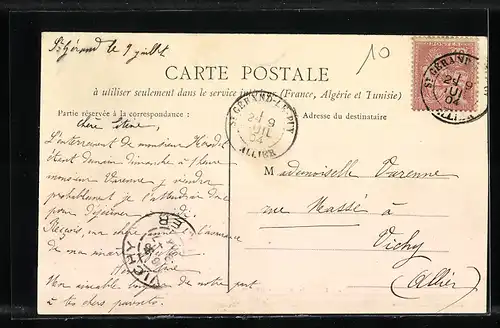 St Gérand le 9 juillet
10
CARTE POSTALE
à utiliser seulement dans le service intérieur (France, Algérie et Tunisie)
Partie réservée à la correspondance :
Adresse du destinataire
chère
L'enterrement de monsieur
étant demain dimanche à 1 heure
monsieur Varenne y viendra
probablement je l'attendrai
pour déjeuner
Reçois, ma chère l'assurance
de ma
Mon aimable de notre part
à tes chers parents.
ST GÉRAND-LE-PUY
9
JUIL
04
ALLIER
ST GÉRAND
9
JUIL
04
ALLIER
VICHY
ALLIER
Mademoiselle Varenne
rue Massé à
Vichy
(Allier)